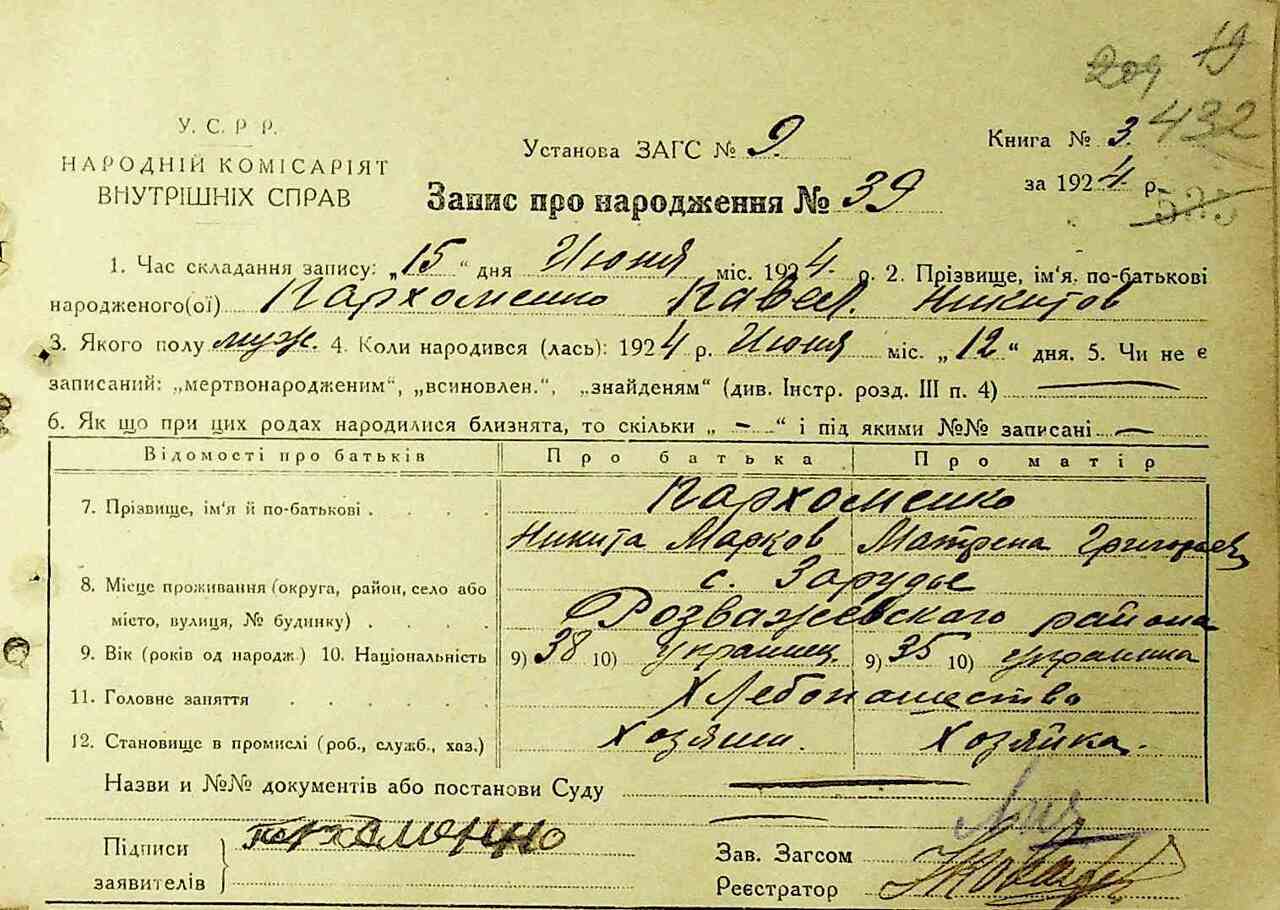 19
209
432
У. С. Р Р.
НАРОДНІЙ КОМІСАРІЯТ
ВНУТРІШНІХ СПРАВ
Установа ЗАГС № 9.
Книга № 3.
за 1924 р.
Запис про народження № 39
1. Час складання запису: „15“ дня Июня міс. 1924 р. 2. Прізвище, ім'я. по-батькові
народженого(ої) Пархоменко Павел. Никитов
3. Якого полу муж. 4. Коли народився (лась): 1924 р. Июня міс. „12“ дня. 5. Чи не є
записаний: „мертвонародженим“, „всиновлен.“, „знайденям“ (див. Інстр. розд. III п. 4)
6. Як що при цих родах народилися близнята, то скільки „ - “ і під якими №№ записані —
Відомості про батьків Про батька Про матір
7. Прізвище, ім'я й по-батькові . . . . Пархоменко
Никита Марков Матрена Григорьев
8. Місце проживання (округа, район, село або с. Зарудье
місто, вулиця, № будинку) . . . . Розважевского района
9. Вік (років од народж.) 10. Національність 9) 38 10) украинец. 9) 35 10) украинка
11. Головне заняття . . . . . . Хлебопашество
12. Становище в промислі (роб., служб., хаз.) Хозяин. Хозяйка.
Назви и №№ документів або постанови Суду
Підписи Пархоменко
заявителів
Зав. Загсом
Реєстратор